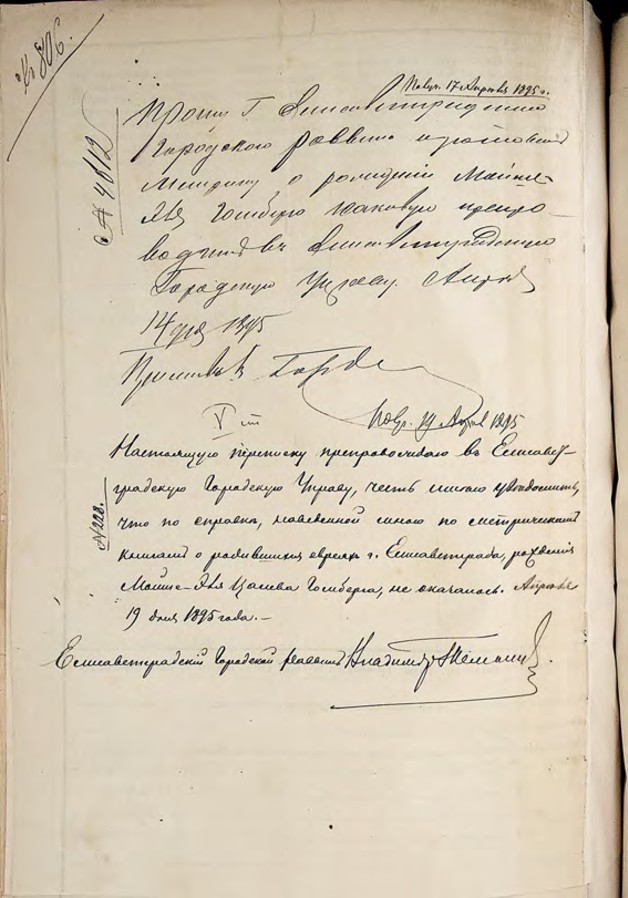 № 806.
Получ. 17 Апреля 1895 г.
№ 4812
Прошу Г. Елисаветградскаго
Городского Раввина
Метрику о рождении Мойше-
Эля Гомберг каковую препро-
водить въ Елисаветградскую
Городскую Управу. Апреля
14 дня 1895
Приставъ
V ст
Получ. 19 Апреля 1895
№ 228.
Настоящую переписку препровождаю въ Елисавет-
градскую Городскую Управу, честь имею уведомить,
что по справке, наведенной мною по метрическимъ
книгамъ о родившихся евреяхъ г. Елисаветграда, рождения
Мойше-Эля Гомберга, не оказалось. Апреля
19 дня 1895 года.—
Елисаветградский Городской Раввинъ Владимиръ